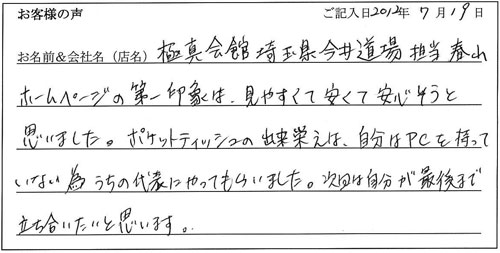 お客様の声 ご記入日2012年7月19日
お名前&会社名(店名) 極真会館埼玉県今井道場 担当 春山
ホームページの第一印象は、見やすくて安くて安心そうと
思いました。ポケットティッシュの出来栄えは、自分はPCを持って
いない為うちの代表にやってもらいました。次回は自分が最後まで
立ち合いたいと思います。